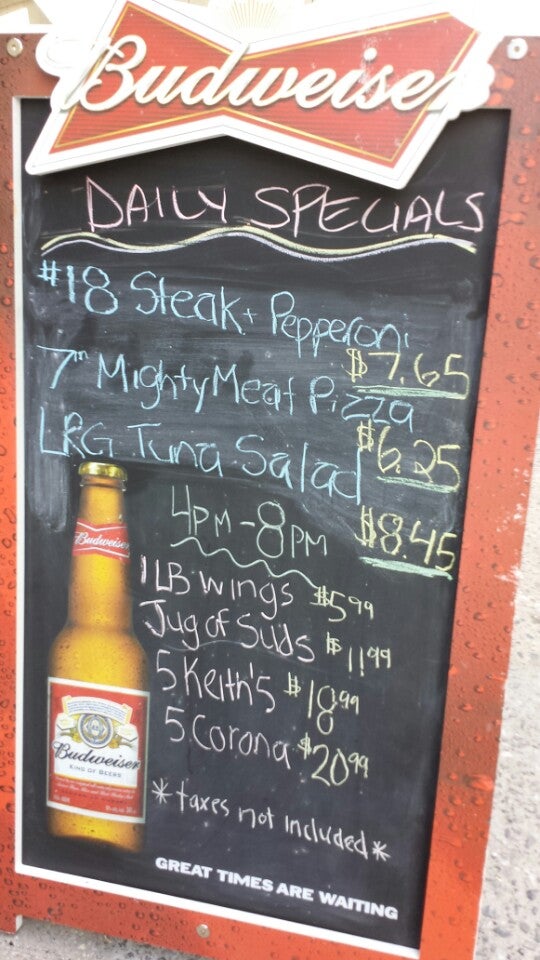 Budweiser
DAILY SPECIALS
#18 Steak + Pepperoni
$7.65
7" Mighty Meat Pizza
$6.25
LRG Tuna Salad
$8.45
4PM-8PM
1LB Wings $5.99
Jug of Suds $11.99
5 Keith's $18.99
5 Corona $20.99
*taxes not included*
GREAT TIMES ARE WAITING
Budweiser
Budweiser
KING OF BEERS